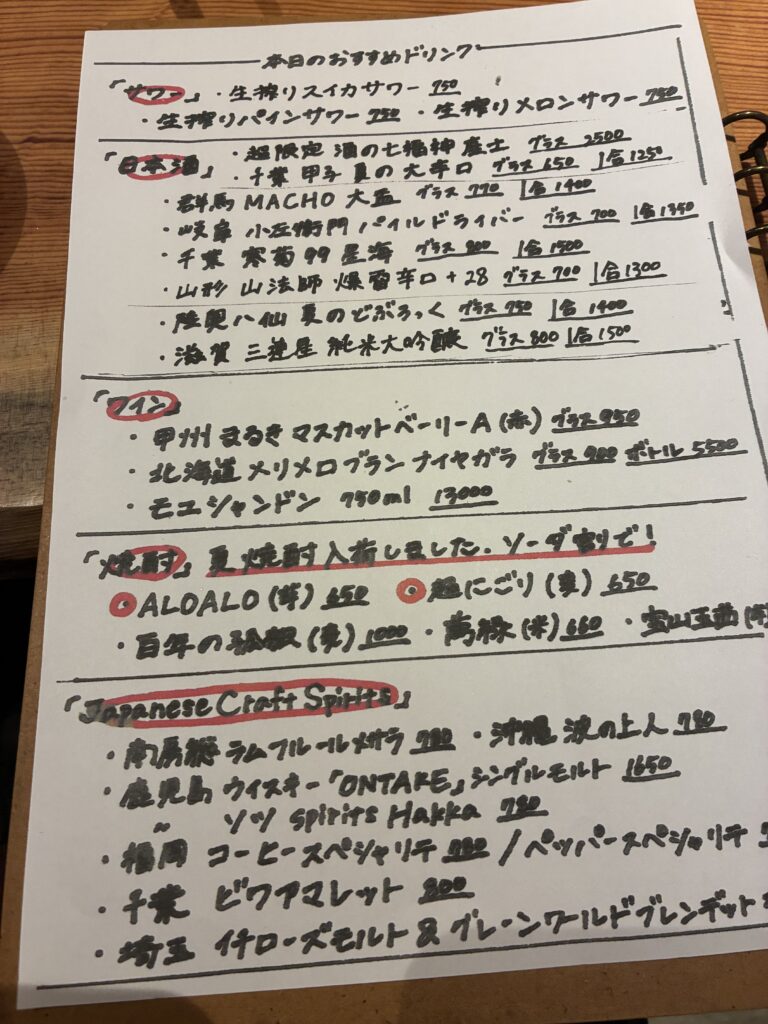 本日のおすすめドリンク
「サワー」・生搾りスイカサワー 750
・生搾りパインサワー 750 ・生搾りメロンサワー 750
「日本酒」・超限定 酒の七福神 產士 グラス 2500
・千葉 甲子 夏の大辛口 グラス 650 1合 1250
・群馬 MACHO 大盃 グラス 770 1合 1400
・岐阜 小左衛門 パイルドライバー グラス 700 1合 1350
・千葉 寒菊 99 星海 グラス 800 1合 1500
・山形 山法師 爆雷辛口 +28 グラス 700 1合 1300
・陸奥八仙 夏のどぶろっく グラス 750 1合 1400
・滋賀 三連星 純米大吟醸 グラス 800 1合 1500
「ワイン」
・甲州 まるき マスカットベーリーA (赤) グラス 950
・北海道 メリメロブラン ナイヤガラ グラス 900 ボトル 5500
・モエシャンドン 750ml 13000
「焼酎」夏焼酎入荷しました。ソーダ割りで!
ALOALO (芋) 650 超にごり (麦) 650
・百年の孤独 (麦) 1000 ・萬緑 (米) 660 ・宝山玉茜
「Japanese Craft Spirits」
・南房総 ラムフルールメザラ 780 ・沖縄 波の上人 780
・鹿児島 ウイスキー「ONTAKE」シングルモルト 1650
〃 ソツ spirits Hakka 780
・福岡 コーヒースペシャリテ 780 / ペッパースペシャリテ
・千葉 ビワアマレット 800
・埼玉 イチローズモルト & グレーンワールドブレンデット